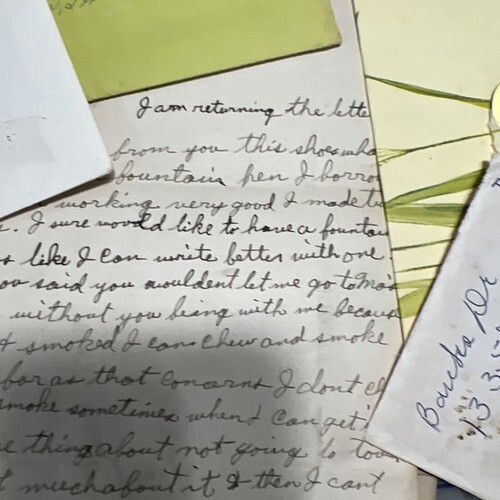 I am returning the lette
from you this shows wha
fountain pen I borro
working very good I made tw
s. I sure would like to have a fountai
s like I can write better with one.
ou said you wouldent let me go to Ma's
without you being with me becaus
t smoked I can chew and smoke
for as that concerns I dont c
smoke sometimes when I can get i
e thing about not going to tow
t much about it & then I cant
Boucher Dr
1335